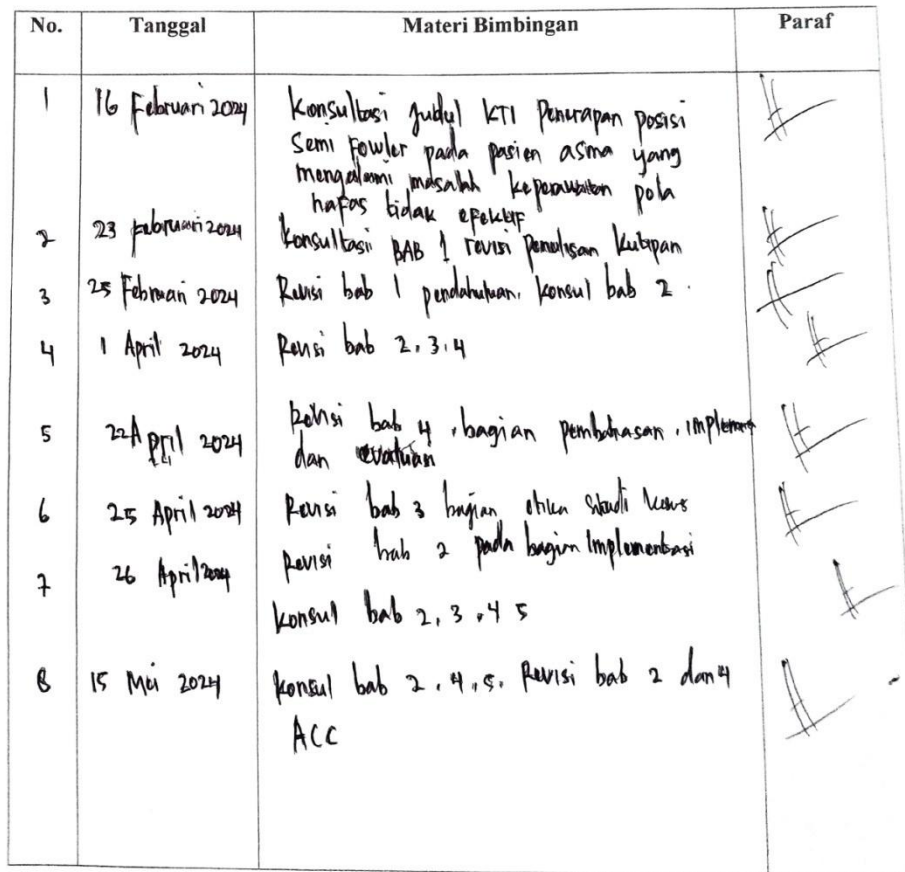 No. Tanggal Materi Bimbingan Paraf
1 16 Februari 2024 Konsultasi Judul KTI Penerapan posisi
Semi Fowler pada pasien asma yang
mengalami masalah keperawatan pola
nafas tidak efektif
2 23 februari 2024 Konsultasi BAB 1 revisi penulisan kutipan
3 25 Februari 2024 Revisi bab 1 pendahuluan, konsul bab 2.
4 1 April 2024 Revisi bab 2,3,4
5 22 April 2024 Revisi bab 4, bagian pembahasan, implemen
dan evaluasi
6 25 April 2024 Revisi bab 3 bagian etika studi kasus
Revisi bab 2 pada bagian Implementasi
7 26 April 2024
konsul bab 2, 3, 4 5
8 15 Mei 2024 konsul bab 2, 4, 5. Revisi bab 2 dan 4
ACC